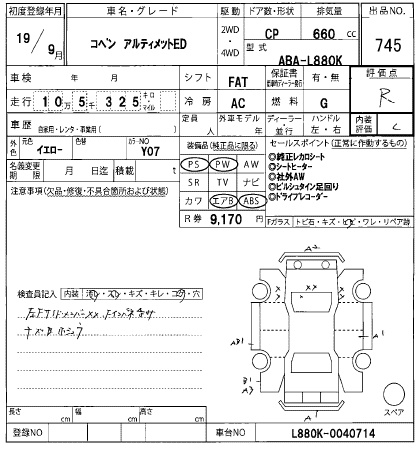 初度登録年月 車名・グレード 駆動 ドア数・形状 排気量 出品NO.
19/9月 コペン アルティメットED 2WD・4WD CP 660cc 745
型式 ABA-L880K
車検 年 月 シフト FAT 保証書 有・無 評価点
走行 10万5千325キロ・マイル 冷房 AC 燃料 G R
車歴 自家用・レンタ・事業用( ) 定員 外車モデル年 ディーラー・並行 ハンドル 左・右 内装評価 C
外色 元色 イエロー 色替 カラーNO Y07
装備品(純正品に限る) セールスポイント(正常に作動するもの)
名義変更期限 月 日迄 積載 t
PS PW AW
SR TV ナビ
カワ エアB ABS
◎純正レカロシート
◎シートヒーター
◎社外AW
◎ビルシュタイン足回り
◎ドライブレコーダー
注意事項(欠品・修復・不具合箇所および状態)
R券 9,170円
Fガラス トビ石・キズ・ヒビ・ワレ・リペア跡
検査員記入 内装 汚レ・スレ・キズ・キレ・コゲ・穴
A2
XX
XX
AB1
A1
B1
A3
A1
スペア
長さ cm 幅 cm 高さ cm
登録NO 車台NO L880K-0040714